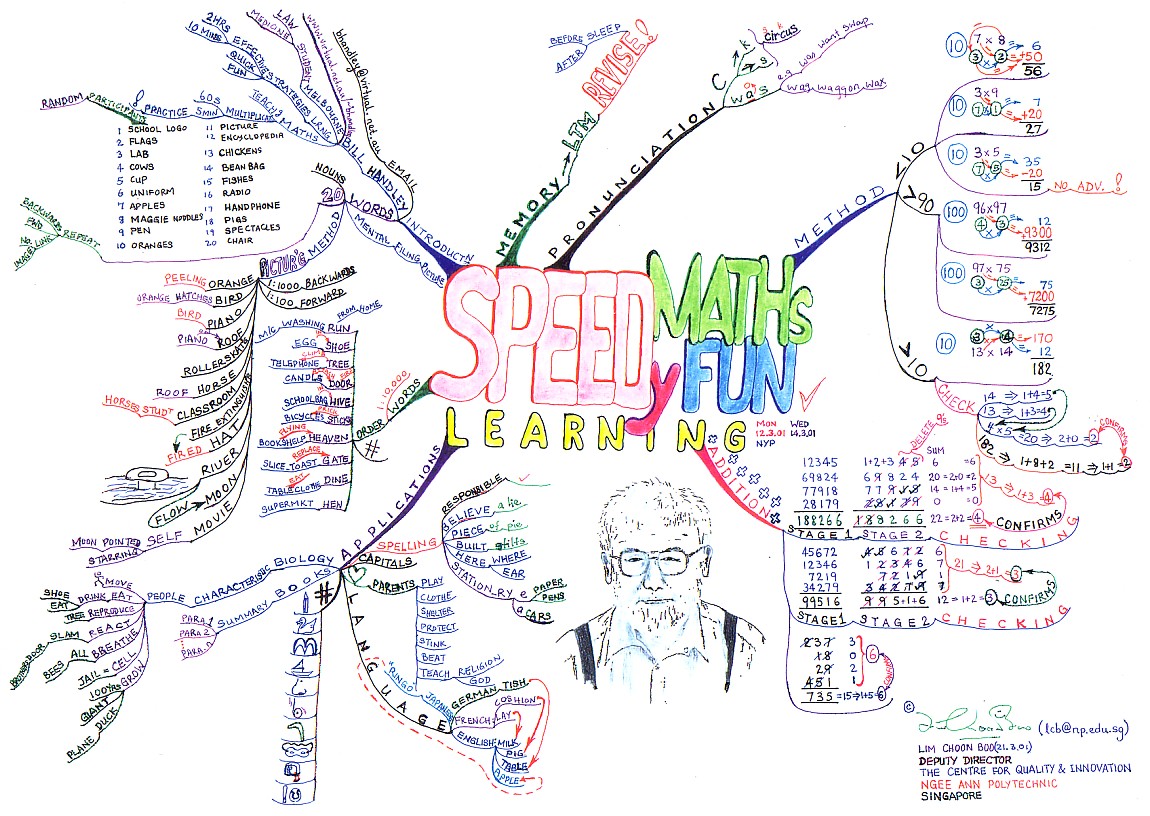 SPEED
MATHS
y FUN
LEARNING
MON
12.3.01
NYP
WED
14.3.01
INTRODUCTN
BILL HANDLEY
EMAIL
bhandley@virtual.net.au
LAW
MEDICINE STUDENT MELBOURNE
TEACH MATHS
EFFECTIVE STRATEGIES LRNG
2HRS
10 MINS
QUICK
FUN
WORDS
20
NOUNS
60s
5MIN MULTIPLICATN
! PRACTICE
PARTICIPANTS
RANDOM
1 SCHOOL LOGO
2 FLAGS
3 LAB
4 COWS
5 CUP
6 UNIFORM
7 APPLES
8 MAGGIE NOODLES
9 PEN
10 ORANGES
11 PICTURE
12 ENCYCLOPEDIA
13 CHICKENS
14 BEAN BAG
15 FISHES
16 RADIO
17 HANDPHONE
18 PIGS
19 SPECTACLES
20 CHAIR
MENTAL FILING PICTURE
PICTURE METHOD
REPEAT
BACKWARDS
FWD
NO. IMAGE LINK
1:1000 BACKWARDS
1:100 FORWARD
PEELING ORANGE
ORANGE HATCHES BIRD
BIRD PIANO
PIANO ON ROOF
ROLLERSKATE
ROOF HORSE
HORSES STUDY CLASSROOM
FIRE EXTINGUISHER
FIRED HAT
RIVER
FLOW → MOON
MOVIE
MOON POINTED SELF
STARRING
WORDS 1:10,000
ORDER
#
FROM HOME
MIC WASHING IN RUN
EGG IN SHOE
TELEPHONE CLIMB TREE
CANDLE DOOR
SCHOOLBAG IN HIVE
BICYCLE STICKS
BOOKSHELF FLYING HEAVEN
SLICE TOAST REPLACE GATE
TABLECLOTH EAT DINE
SUPERMKT HEN
MEMORY → LTM
REVISE!
BEFORE SLEEP
AFTER
PRONUNCIATION
C
k
s
circus
was
e.g. was want swap
wag waggon wax
METHOD
<10
>90
>10
10 7 x 8 = 6
3 2 +50
56
10 3 x 9 = 7
7 1 +20
27
10 3 x 5 = 35
7 5 -20
15
NO ADV. !
100 96 x 97 = 12
4 3 9300
9312
100 97 x 75 = 75
3 25 +7200
7275
10 3 4 = 170
13 x 14 = 12
182
CHECK
14 ⇒ 1+4=5
13 ⇒ 1+3=4
4 x 5 =20 ⇒ 2+0=2
182 ⇒ 1+8+2 =11 ⇒ 1+1=2
CONFIRMS
ADDITION
DELETE 9s
SUM
12345 1+2+3 4 5 6 =6
69824 6 9 8 2 4 20=2+0=2
77918 7 7 9 1 8 14=1+4=5
28179 2 8 1 7 9 0 =0
188266 1 8 8 2 6 6 22=2+2=4
13 ⇒ 1+3=4
CONFIRMS
STAGE 1 STAGE 2 CHECKING
45672 4 5 6 7 2 6
12346 1 2 3 4 6 7
7219 7 2 1 9 1
34279 3 4 2 7 9 7
99516 9 9 5+1+6 12=1+2=3
21 ⇒ 2+1=3
CONFIRMS
STAGE 1 STAGE 2 CHECKING
237 3
18 0
29 2
451 1
735 =15⇒1+5=6
6
APPLICATIONS
SPELLING
RESPONSIBLE
BELIEVE a lie.
PIECE of pie.
BUILT stilts
HERE WHERE
EAR
STATIONERY e PAPER
PENS
a CARS
CAPITALS
PARENTS
PLAY
CLOTHE
SHELTER
PROTECT
STINK
BEAT
TEACH RELIGION
GOD
LANGUAGE
"RINGO" JAPANESE
GERMAN TISH
FRENCH LAY
COSHION
ENGLISH MILK
PIG
TABLE
APPLE
#
BOOKS
SUMMARY
PARA 1
PARA 2
PARA n
BIOLOGY
CHARACTERISTIC
PEOPLE
MOVE
DRINK EAT
SHOE
EAT
TREE REPRODUCE
REACT
SLAM
BREATHE
BEES ALL
JAIL = CELL
100YRS GROW
GIANT
PLANE DUCK
©
(lcb@np.edu.sg)
LIM CHOON BOO(21.3.01)
DEPUTY DIRECTOR
THE CENTRE FOR QUALITY & INNOVATION
NGEE ANN POLYTECHNIC
SINGAPORE